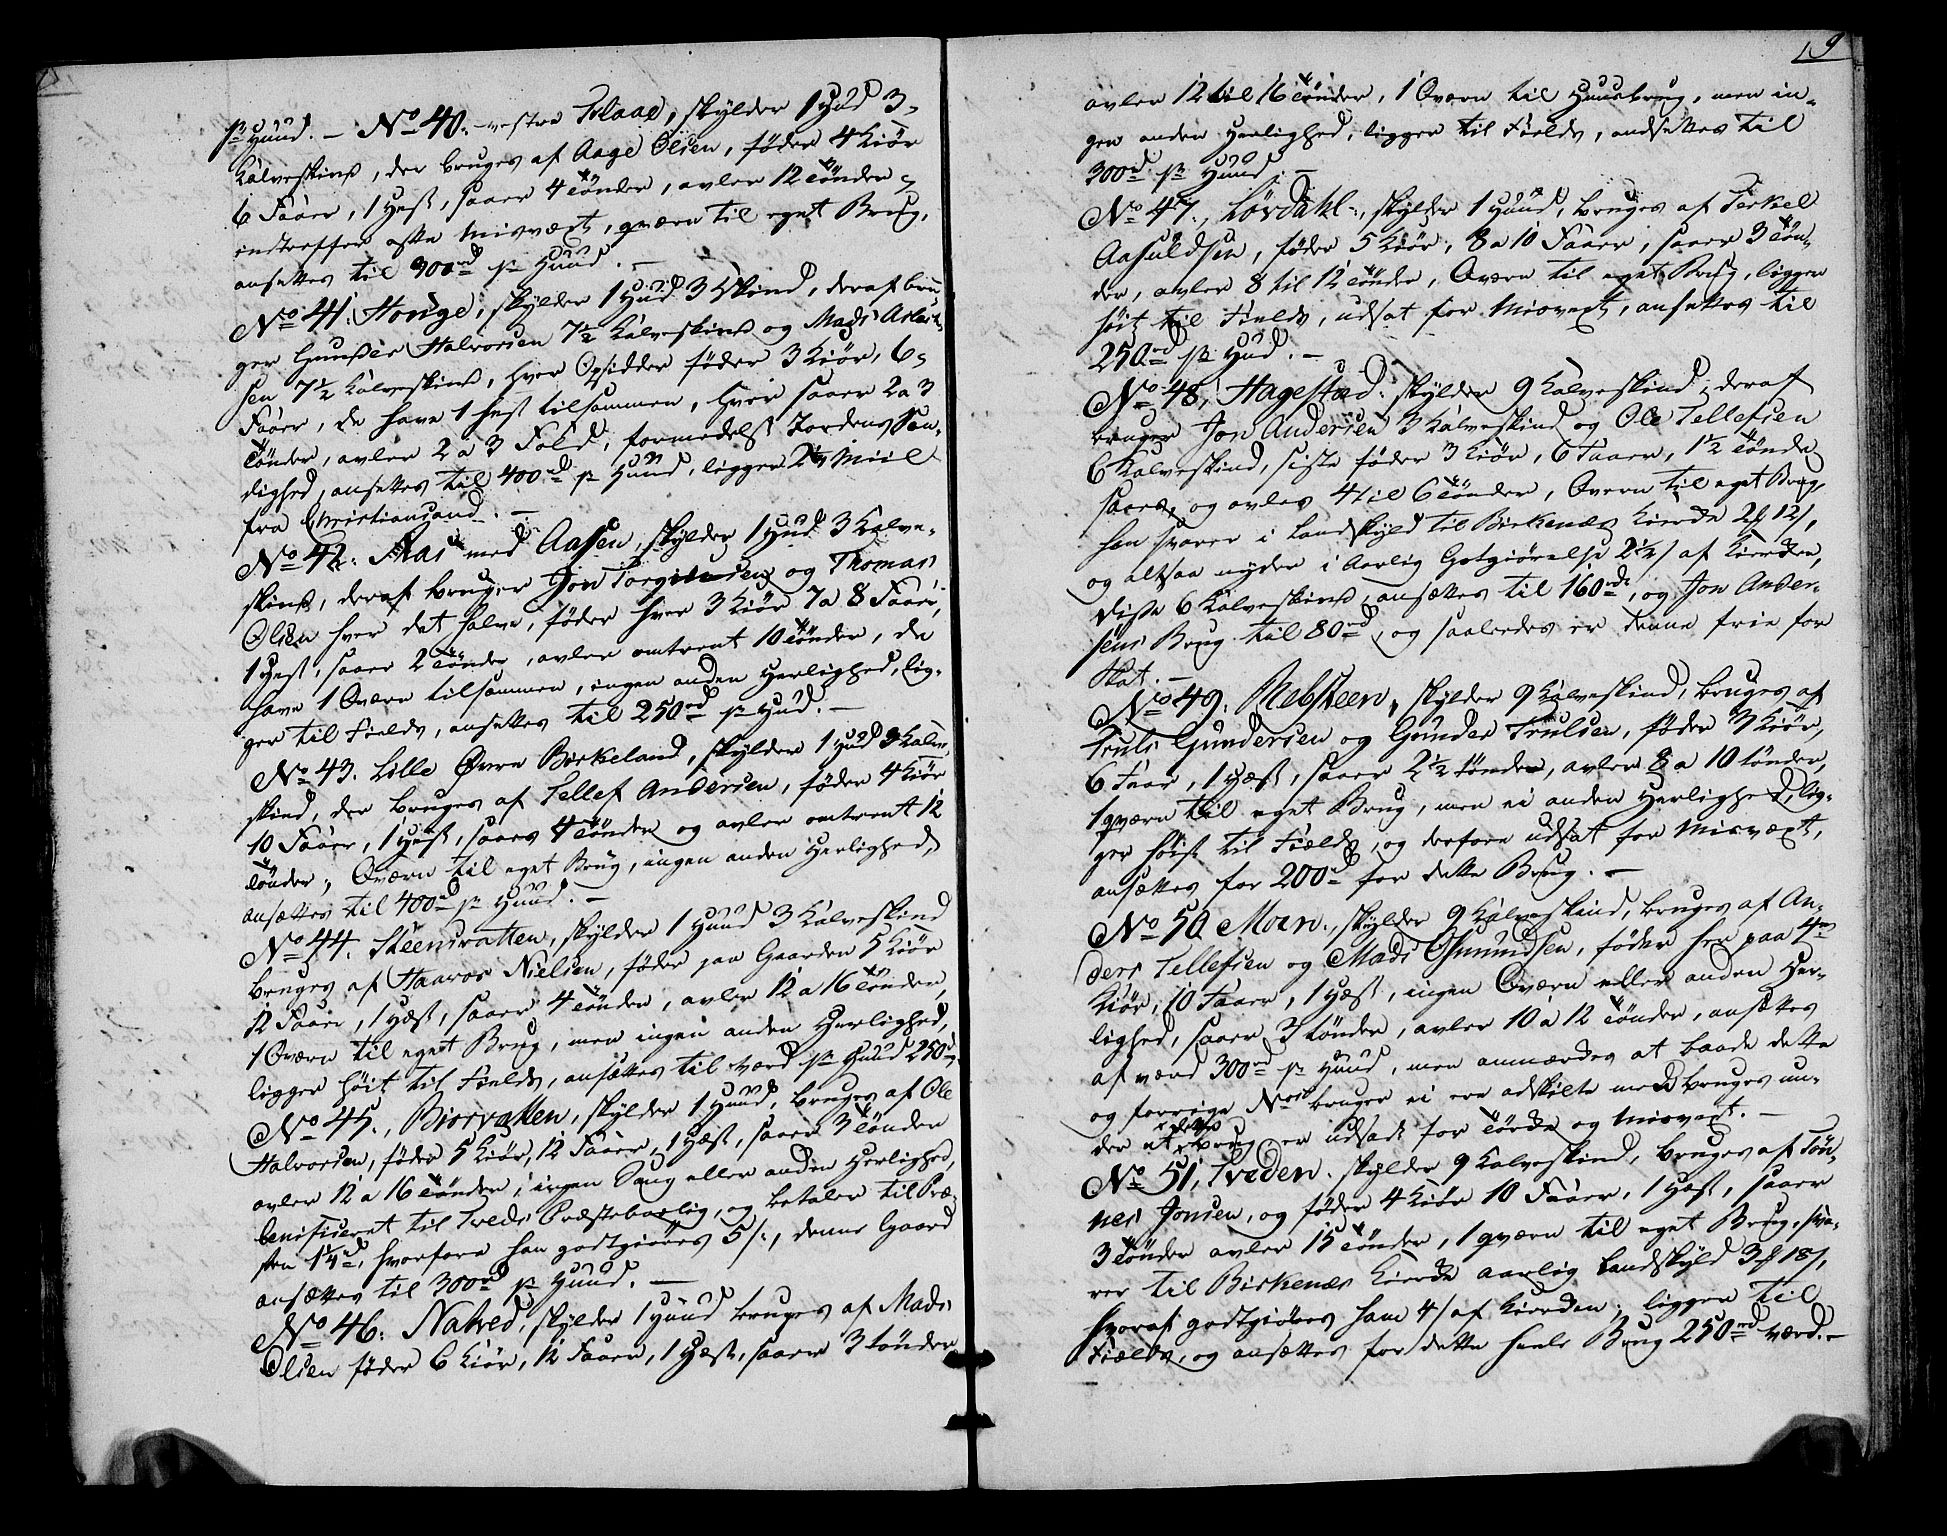 pr Huud. — No 40. vestre Flaae, skylder 1 Hud 3
Kalveskind, der bruges af Aage Olsen, føder 4 Kiør
6 Faaer, 1 Hest, saaer 4 Tönder, avler 12 Tönder,
indtreffer ofte Misvæxt, qværn til eget Brug,
ansettes til 300rd pr Huud. —
No 41. Honge, skylder 1 Hud 3 Skind, deraf bru-
ger Halvorsen 7½ Kalveskind og Mads
sen 7½ Kalveskind, hver Opsidder føder 3 Kiør, 6
Faaer, De have 1 hest tilsammen, hver saaer 2 a 3
Tönder, avler 2 a 3 Fold, formedelst Jordens San-
dighed, ansettes til 400rd pr Huud, ligger Miil
fra Christiansand. —
No 42. med Aasen, skylder 1 Hud 3 Kalve-
skind, deraf bruger Jon og Thomas
Olsen hver det halve, føder hver 3 Kiør 7 a 8 Faaer,
1 Hest, saaer 2 Tönder, avler omtrent 10 Tönder, de
have 1 Qværn tilsammen, ingen anden Herlighed, lig-
ger til Fields, ansettes til 250rd pr Hud. —
No 43. Lille Øvre Birkeland, skylder 1 Hud 3 Kalve-
skind, der bruges af Tellef Andersen, føder 4 Kiør
10 Faaer, 1 Hest, saaer 4 Tönder og avler omtrent 12
Tönder, Qværn til eget Brug, ingen anden Herlighed,
ansættes til 400rd pr Huud. —
No 44. Steensvatten, skylder 1 Huud 3 Kalveskind
bruges af Haavor Nielsen, føder paa Gaarden 5 Kiør
12 Faaer, 1 Hæst, saaer 4 Tönder, avler 12 a 16 Tönder,
1 Qværn til eget Brug, men ingen anden Herlighed,
ligger høit til Fields, ansættes til værd pr Huud 250rd
No 45. Biorvatten, skylder 1 Huud, bruges af Ole
Halvorsen, føder 5 Kiør, 12 Faaer, 1 Hæst, saaer 3 Tönder
avler 12 a 16 Tönder, ingen Saug eller anden Herlighed,
benificeret til Tveds Præstebolig, og betaler til Præ-
sten hvorfore han godtgiøres 5 s, denne Gaard
ansættes til 300rd pr Huud. —
No 46. Natved, skylder 1 Huud bruges af Mads
Olsen føder 6 Kiør, 12 Faaer, 1 Hæst, saaer 3 tønder
19
avler 12 til 16 Tönder, 1 Qværn til Huusbrug, men in-
gen anden Herlighed, ligger til Fields, andsettes til
300rd pr Huud. —
No 47. Lördahl, skylder 1 Huud, bruges af Terkel
Aasuldsen, føder 5 Kiør, 8 a 10 Faaer, saaer 3 Tön-
der, avler 8 til 12 Tönder, Qværn til eget Brug, ligger
høit til Fields, udsat for Misvext, ansettes til
250rd pr Hud. —
No 48, Hagestad, skylder 9 Kalveskind, deraf
bruger Jon Andersen 3 Kalveskind og Ole Tellefsen
6 Kalveskind, siste føder 3 Kiør, 6 Faaer, 1½ Tönde
saaes og avles 4 til 6 Tönder, Qværn til eget Brug,
han svarer i Landskyld til Birkenæs Kierke 2 12 s,
og altsaa nyder i Aarlig Godtgiørelse 2½ s af Kierken,
Disse 6 Kalveskind ansættes til 160rd, og Jon Ander-
sens Brug til 80rd, og saaledes er denne frie for
Skat. —
No 49. Mebsteen, skylder 9 Kalveskind, bruges af
Truls Gundersen og Gunder Trulsen, føder 3 Kiør,
6 Faar, 1 Hæst, saaer 2½ tönder, avler 8 a 10 tönder,
1 qværn til eget Brug, men ei anden Herlighed, lig-
ger høit til Fields, og derfore udsat for Misvæxt,
ansættes for 200rd for dette Brug. —
No 50 Moen, skylder 9 Kalveskind, bruges af An-
ders Tellefsen og Mads Osmundsen, føder her paa 4re
Kiør, 10 Faaer, 1 Hæst, ingen Qværn eller anden Her-
lighed, saaer 3 tönder, avler 10 a 12 Tönder, ansættes
af værd 300rd pr Huud, men anmærkes at baade dette
og forrige Nos bruger ei ere adskilte men bruges un-
der et dette brug er udsadt for Törke og Misvext. —
No 51, Tveden, skylder 9 Kalveskind, bruges af Tön-
nes Jonsen, og føder 4 Kiør 10 Faaer, 1 Hæst, saaer
3 Tönder avler 15 Tönder, 1 qværn til eget Brug, sva-
rer til Birkenæs Kierke aarlig Landskyld 3 18 s,
hvoraf godtgiøres ham 4 s af Kierken, ligger til
Fields, og ansættes for dette heele Brug 250rd værd. —